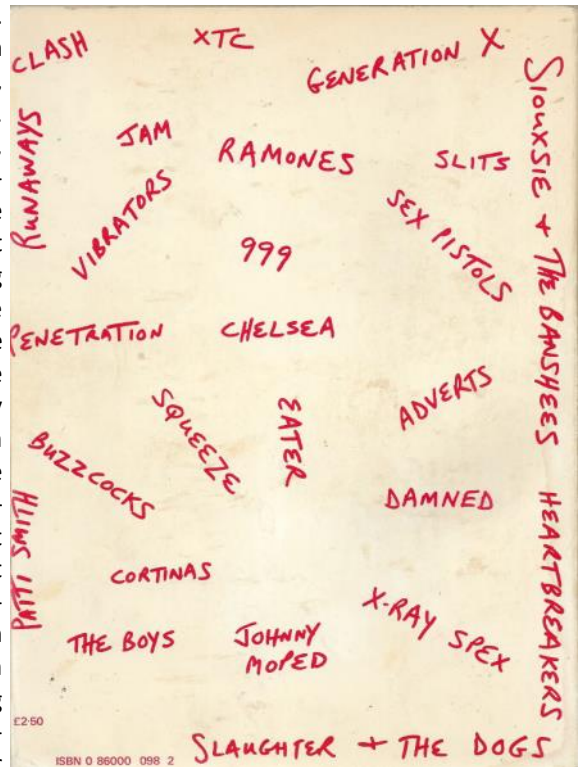 CLASH
XTC
GENERATION X
SIOUXSIE + THE BANSHEES
RUNAWAYS
JAM
RAMONES
SLITS
VIBRATORS
SEX PISTOLS
999
PENETRATION
CHELSEA
SQUEEZE
EATER
ADVERTS
BUZZCOCKS
DAMNED
HEARTBREAKERS
PATTI SMITH
CORTINAS
X-RAY SPEX
THE BOYS
JOHNNY
MOPED
£2·50
ISBN 0 86000 098 2
SLAUGHTER + THE DOGS